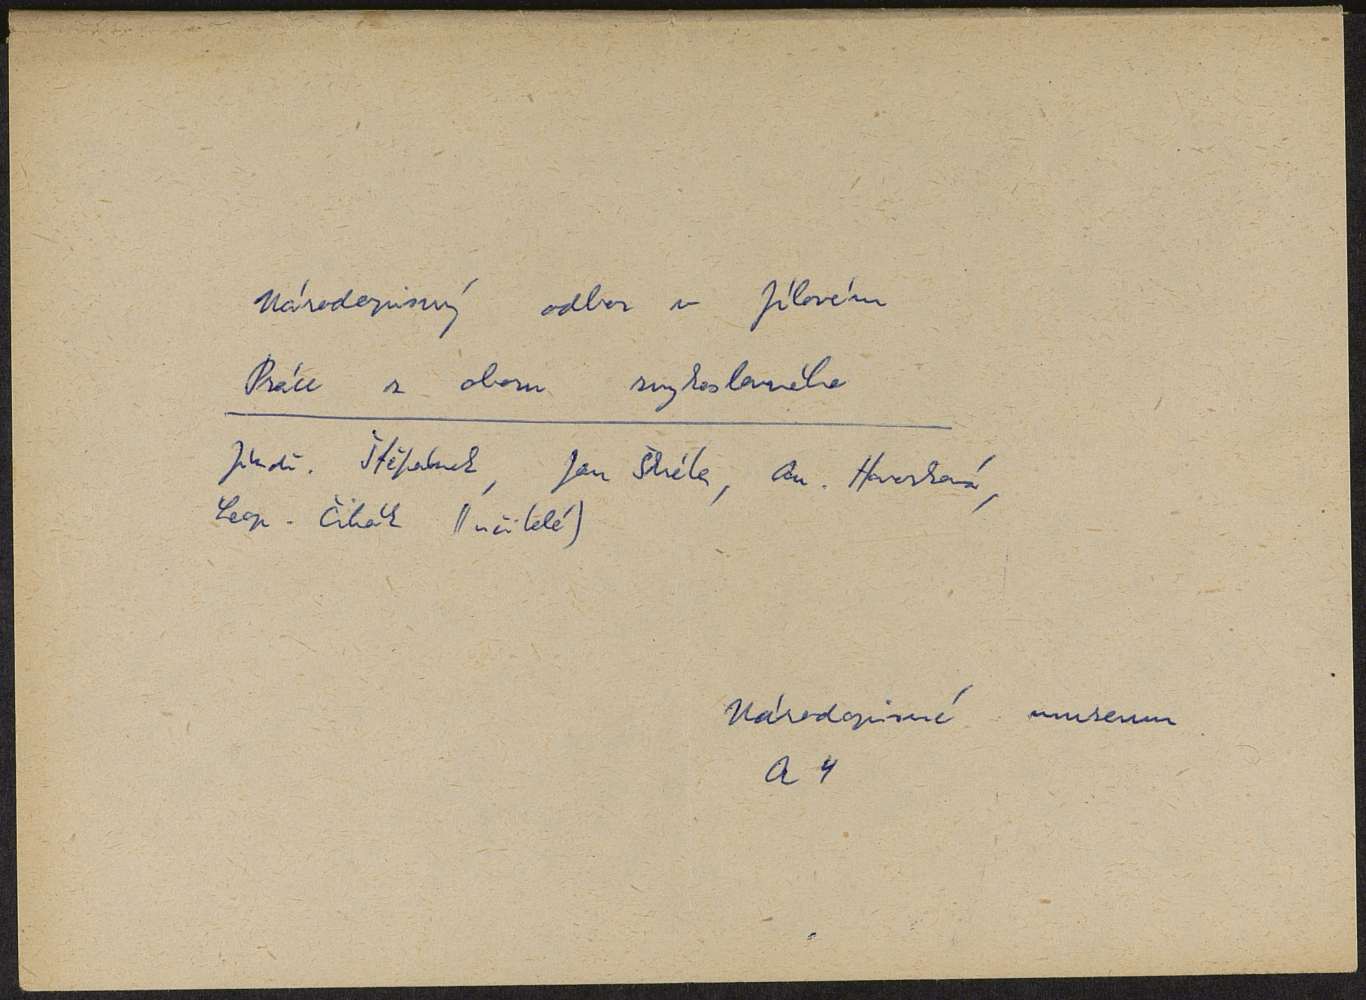 Národopisný odbor v Jílovém
Práce z oboru zvykoslovného
Jindř. Štěpánek, Jan , An. Havorková,
Leop. Čihák (učitelé)
Národopisné museum
A 4